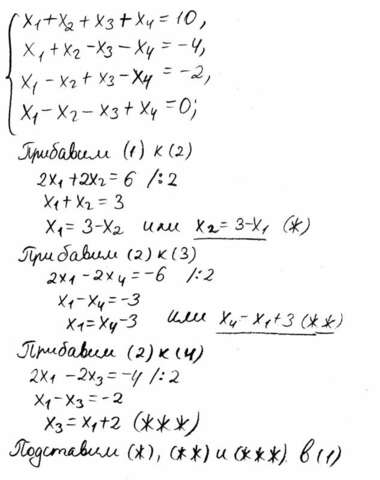 x₁+x₂+x₃+x₄=10,
x₁+x₂-x₃-x₄=-4,
x₁-x₂+x₃-x₄=-2,
x₁-x₂-x₃+x₄=0;
Прибавим (1) к (2)
2x₁+2x₂=6 /:2
x₁+x₂=3
x₁=3-x₂ или x₂=3-x₁ (ж)
Прибавим (2) к (3)
2x₁-2x₄=-6 /:2
x₁-x₄=-3
x₁=x₄-3 или x₄-x₁+3 (жж)
Прибавим (2) к (4)
2x₁-2x₃=-4 /:2
x₁-x₃=-2
x₃=x₁+2 (жжж)
Подставим (ж), (жж) и (жжж) в (1)